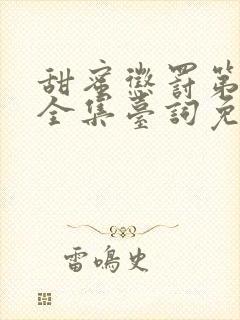 甜蜜懲罰第
全集臺詞免
雷鳴史